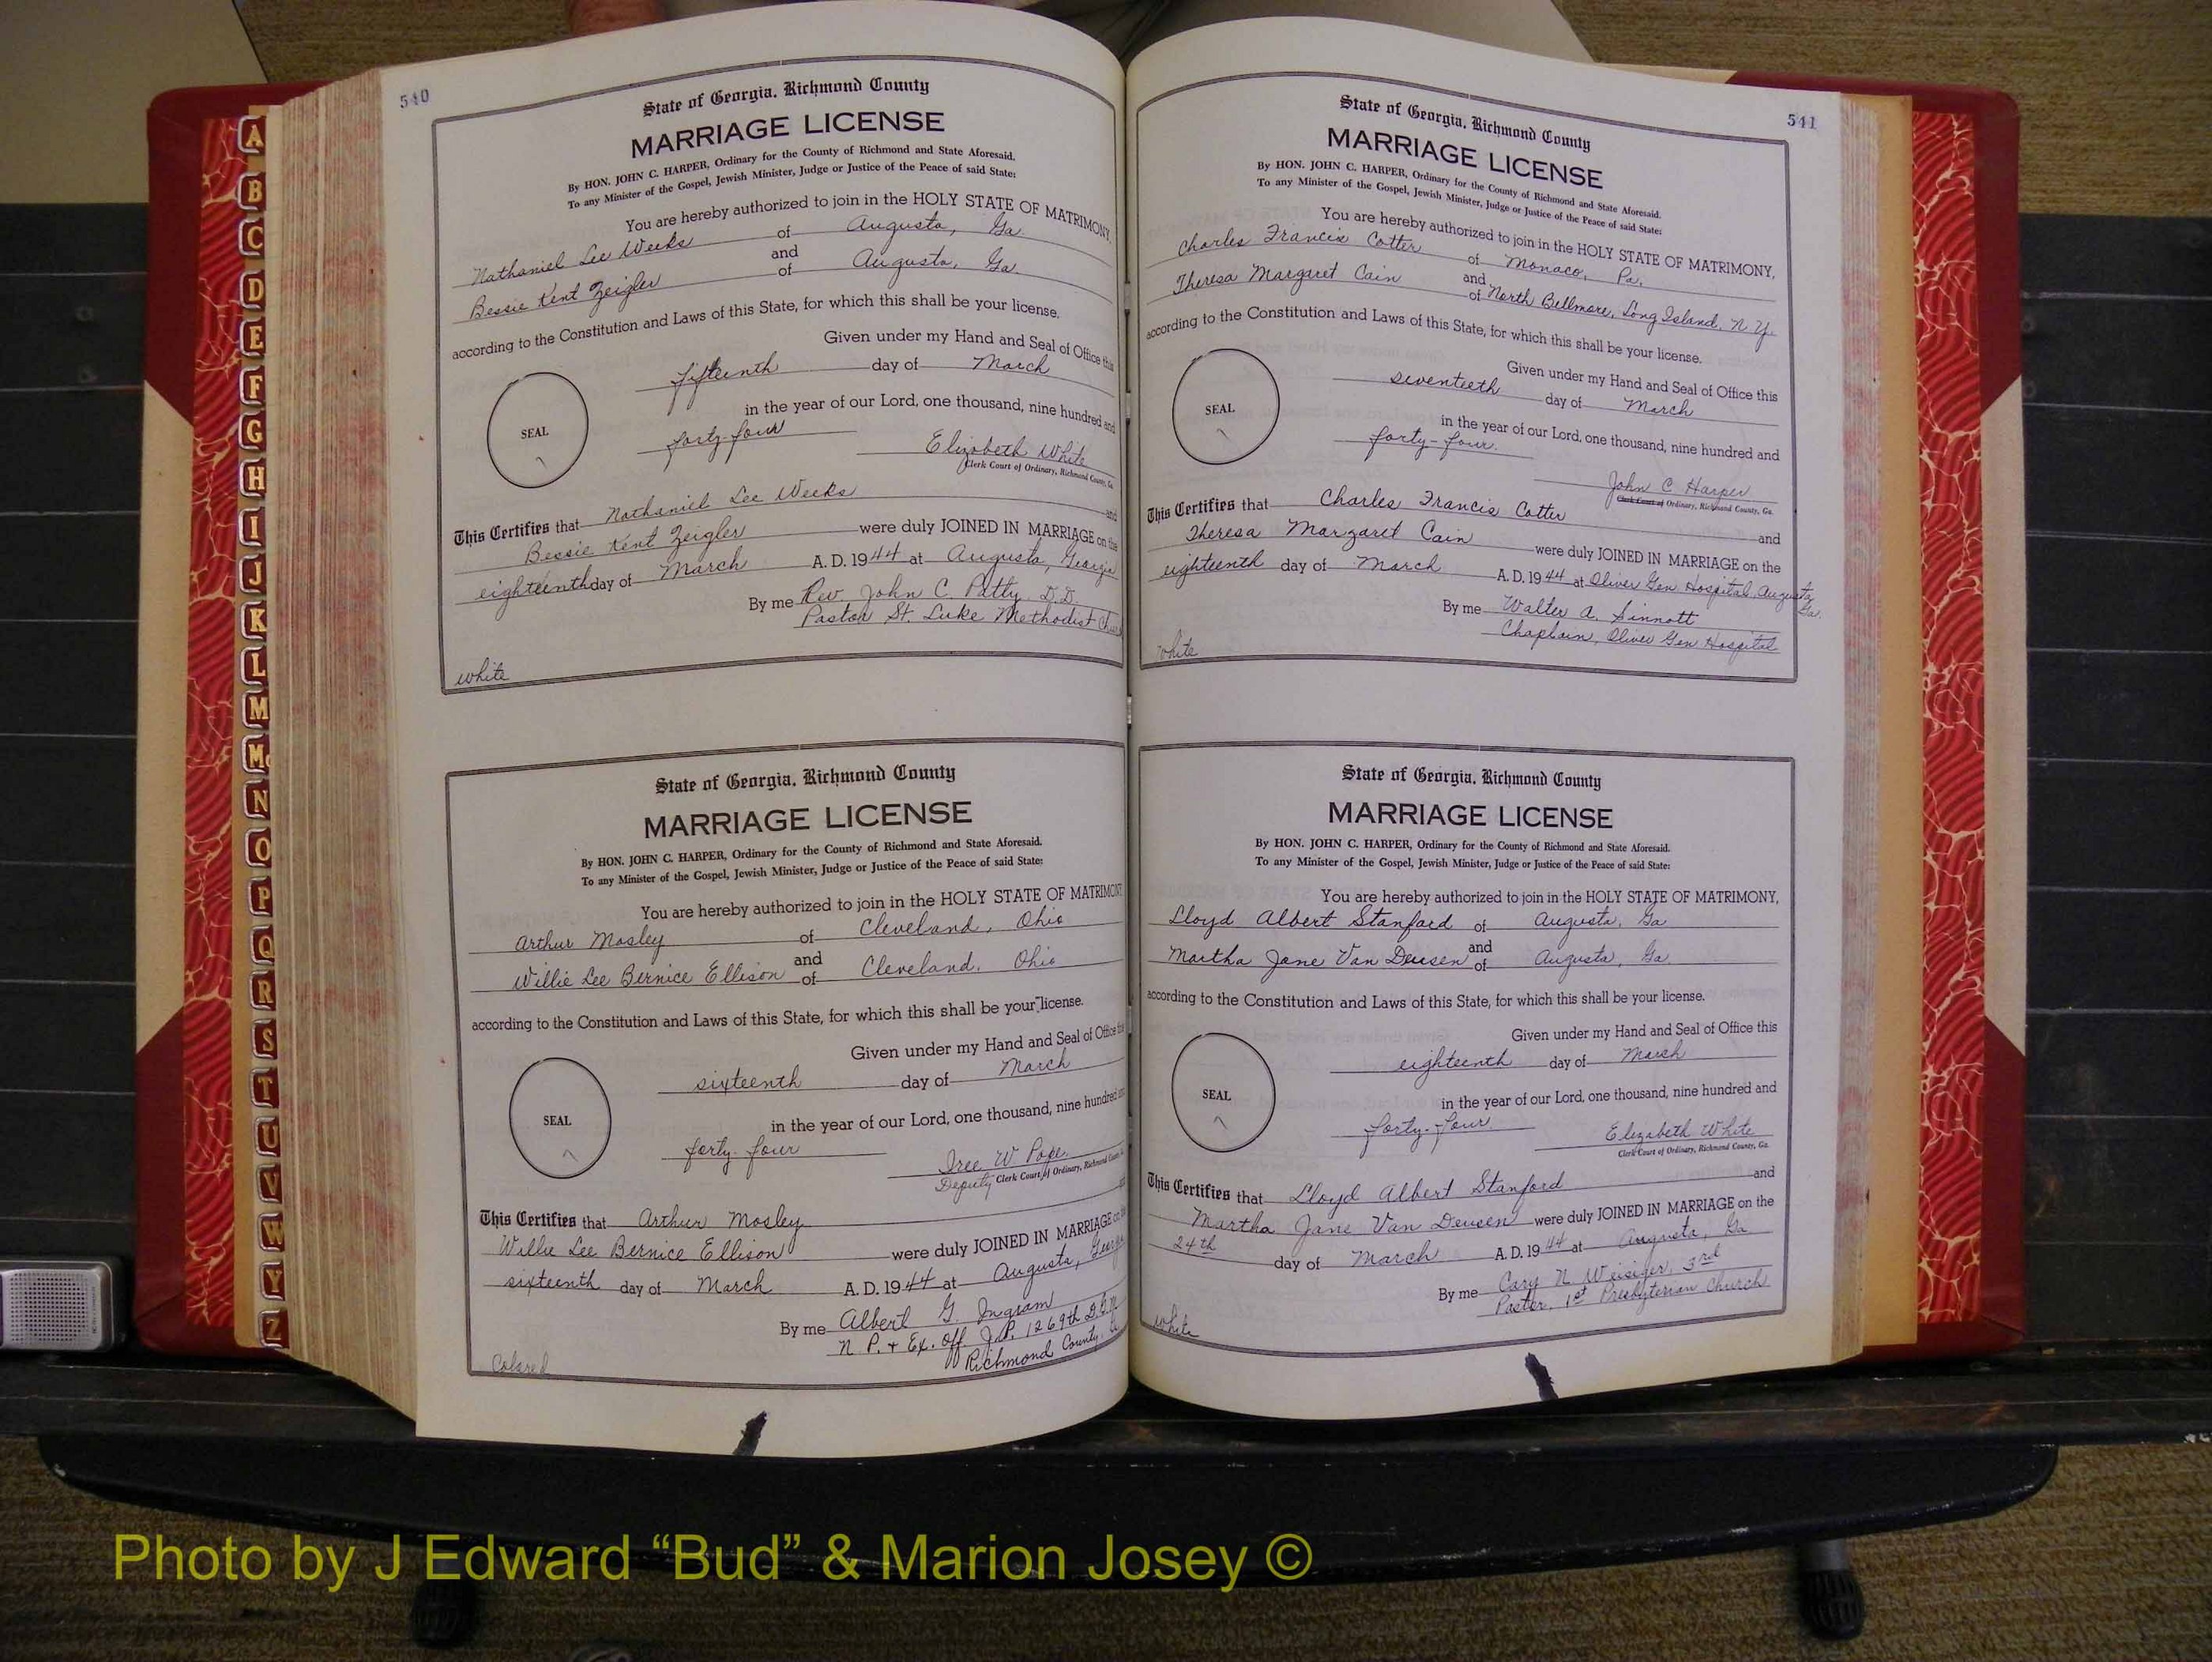 540
State of Georgia, Richmond County
MARRIAGE LICENSE
By HON. JOHN C. HARPER, Ordinary for the County of Richmond and State Aforesaid.
To any Minister of the Gospel, Jewish Minister, Judge or Justice of the Peace of said State:
You are hereby authorized to join in the HOLY STATE OF MATRIMONY,
Nathaniel Lee Weeks of Augusta, Ga.
and
Bessie Kent Zeigler of Augusta, Ga.
according to the Constitution and Laws of this State, for which this shall be your license.
Given under my Hand and Seal of Office this
fifteenth day of March
in the year of our Lord, one thousand, nine hundred and
SEAL
forty-four
Elizabeth White
Clerk Court of Ordinary, Richmond County, Ga.
This Certifies that Nathaniel Lee Weeks and
Bessie Kent Zeigler were duly JOINED IN MARRIAGE on the
eighteenth day of March A. D. 1944 at Augusta, Georgia
By me Rev. John C. Patty, D.D.
Pastor St. Luke Methodist
white
State of Georgia, Richmond County
MARRIAGE LICENSE
By HON. JOHN C. HARPER, Ordinary for the County of Richmond and State Aforesaid.
To any Minister of the Gospel, Jewish Minister, Judge or Justice of the Peace of said State:
You are hereby authorized to join in the HOLY STATE OF MATRIMONY
Arthur Mosley of Cleveland, Ohio
and
Willie Lee Bernice Ellison of Cleveland, Ohio
according to the Constitution and Laws of this State, for which this shall be your license.
Given under my Hand and Seal of Office
sixteenth day of March
in the year of our Lord, one thousand, nine hundred
SEAL
forty-four
W Pope
Deputy Clerk Court of Ordinary, Richmond
This Certifies that Arthur Mosley
Willie Lee Bernice Ellison were duly JOINED IN MARRIAGE on
sixteenth day of March A. D. 1944 at Augusta,
By me Albert G. Ingram
N. P. + Ex. Off. J.P. 1269th D.G.M.
Richmond County,
Colored
541
State of Georgia, Richmond County
MARRIAGE LICENSE
By HON. JOHN C. HARPER, Ordinary for the County of Richmond and State Aforesaid.
To any Minister of the Gospel, Jewish Minister, Judge or Justice of the Peace of said State:
You are hereby authorized to join in the HOLY STATE OF MATRIMONY,
Charles Francis Cotter of Monaco, Pa.
and
Theresa Margaret Cain of North Bellmore, Long Island, N.Y.
according to the Constitution and Laws of this State, for which this shall be your license.
Given under my Hand and Seal of Office this
seventeeth day of March
in the year of our Lord, one thousand, nine hundred and
SEAL
forty-four.
John C Harper
Clerk Court of Ordinary, Richmond County, Ga.
This Certifies that Charles Francis Cotter and
Theresa Margaret Cain were duly JOINED IN MARRIAGE on the
eighteenth day of March A. D. 1944 at Oliver Gen Hospital, Augusta
Ga.
By me Walter A. Sinnott
Chaplain, Oliver Gen Hospital
white
State of Georgia, Richmond County
MARRIAGE LICENSE
By HON. JOHN C. HARPER, Ordinary for the County of Richmond and State Aforesaid.
To any Minister of the Gospel, Jewish Minister, Judge or Justice of the Peace of said State:
You are hereby authorized to join in the HOLY STATE OF MATRIMONY,
Lloyd Albert Stanford of Augusta, Ga
and
Martha Jane Van Deusen of Augusta, Ga.
according to the Constitution and Laws of this State, for which this shall be your license.
Given under my Hand and Seal of Office this
eighteenth day of March
in the year of our Lord, one thousand, nine hundred and
SEAL
forty-four
Elizabeth White
Clerk Court of Ordinary, Richmond County, Ga.
This Certifies that Lloyd Albert Stanford and
Martha Jane Van Deusen were duly JOINED IN MARRIAGE on the
24th day of March A. D. 1944 at Augusta, Ga
By me Cary N. Weisiger, 3rd
Pastor, 1st Presbyterian Church
white
A
B
C
D
E
F
G
H
I
J
K
L
M
Mc
N
O
P
Q
R
S
T
U
V
W
Y
Z
Photo by J Edward “Bud” & Marion Josey ©